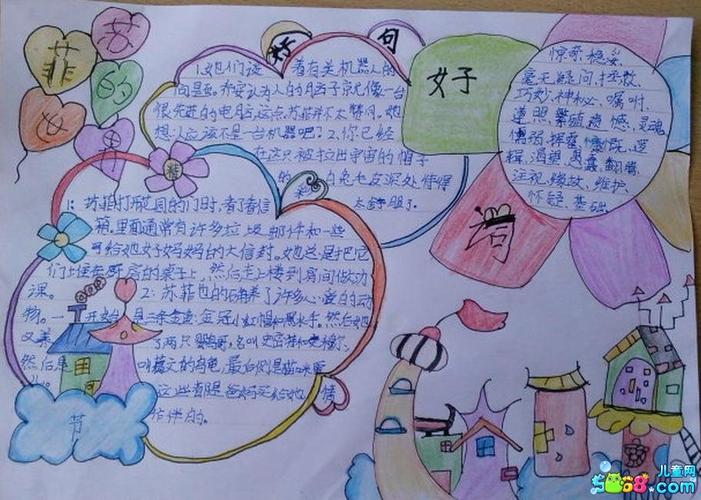 苏
菲
的
世
界
好
句
1.她们谈 着有关机器人的
问题。乔安认为人的脑子就像一台
很先进的电脑,这点,苏菲并不太赞同。她
想:人应该不是一台机器吧?2.你已经
在这只被拉出宇宙的帽子
的 白兔毛皮深处待得
太舒服了。
好
词
惊奇、稳妥、
毫无疑问、拯救、
巧妙、神秘、嘱咐、
遵照、遗憾、灵魂
懦弱、挥霍、慷慨、选
择、渴望、愚蠢、翻腾、
注视、缘故、维护、
怀疑、基础
精
彩
1:苏菲打开花园的门时,看了看信
箱,里面通常有许多垃圾邮件和一些
写给她妈妈的大信封。她总是把它
们上楼在厨房的桌子上,然后走上楼到房间做功
课。 2:苏菲也的确养了许多心爱的动
物。一开始是三条金鱼:金冠、小红帽和黑水手。然后她
又养 了两只鹦鹉,名叫史密特和史穆尔,
然后是 叫葛文的乌龟,最后则是猫咪雪
儿。 这些都是爸妈买给她
作伴的。
节
儿童网
5068.com